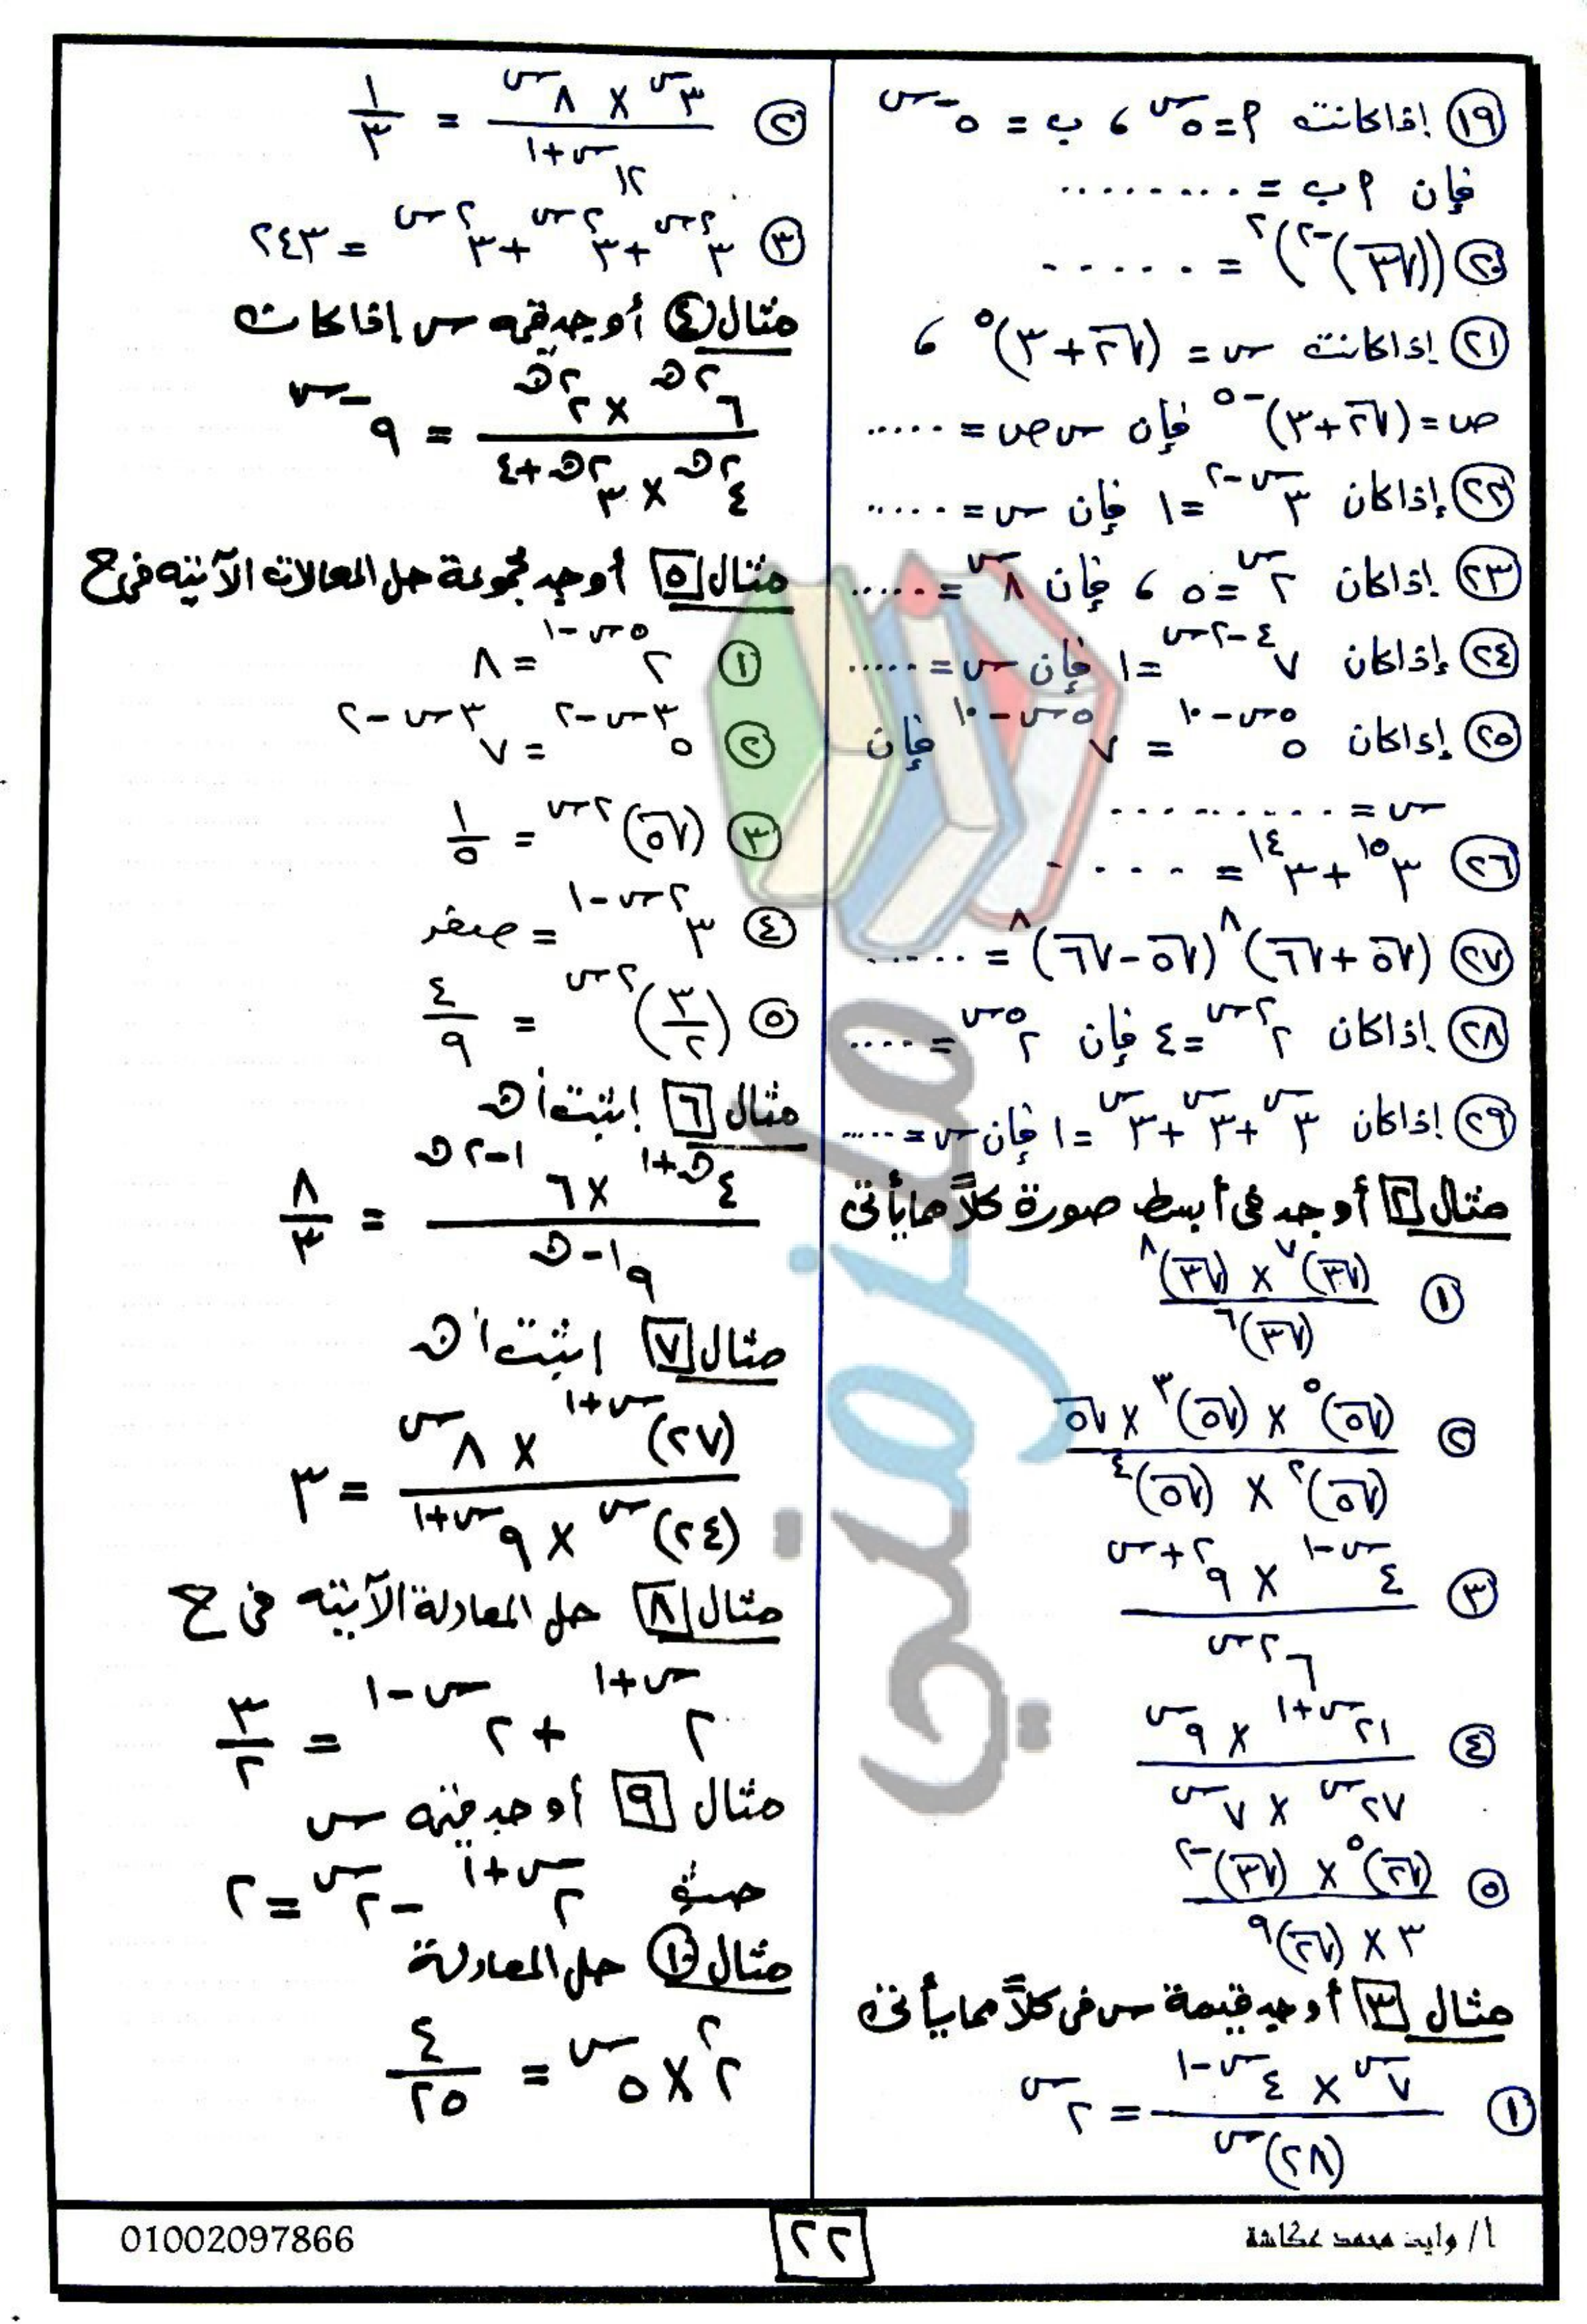 ١٩ إذا كانت م = ٥^س ، ب = ٥^-س
فإن م ب = .........
٢٠ ((√٣)^-٢)^٢ = ......
٢١ إذا كانت س = (√٢ + ٣)^٥ ،
ص = (√٢ + ٣)^-٥ فإن س ص = .....
٢٢ إذا كان ٣^(س-٢) = ١ فإن س = .....
٢٣ إذا كان ٢^س = ٥ ، فإن ٨^س = .....
٢٤ إذا كان ٧^(٤-٢س) = ١ فإن س = .....
٢٥ إذا كان ٥^(٥س-١٠) = ٧^(٥س-١٠) فإن
س = .........
٢٦ ٣^١٥ + ٣^١٤ = ....
٢٧ (√٥ + √٦)^٨ (√٥ - √٦)^٨ = .....
٢٨ إذا كان ٢^٢س = ٤ فإن ٢^٥س = ....
٢٩ إذا كان ٣^س + ٣^س + ٣^س = ١ فإن س = .....
مثال ٢ أوجد فى أبسط صورة كلاً مما يأتى
١ (√٣)^٧ × (√٣)^٨ / (√٣)^٦
٢ (√٥)^٥ × (√٥)^٣ × √٥ / (√٥)^٢ × (√٥)^٤
٣ ٤^(س-١) × ٩^(٢+س) / ٦^٢س
٤ ٢١^(س+١) × ٩^س / ٢٧^س × ٧^س
٥ (√٢)^٥ × (√٣)^-٢ / ٣ × (√٢)^٩
مثال ٣ أوجد قيمة س فى كلاً مما يأتى
١ ٧^س × ٤^(س-١) / (٢٨)^س = ٢^س
٢ ٣^س × ٨^س / ١٢^(س+١) = ١/٣
٣ ٣^٢س + ٣^٢س + ٣^٢س = ٢٤٣
مثال ٤ أوجد قيمه س إذا كات
٦^٢ن × ٢^٢ن / ٤^٢ن × ٣^(٢ن+٤) = ٩^-س
مثال ٥ أوجد مجموعة حل المعالات الآتيه فى ح
١ ٢^(٥س-١) = ٨
٢ ٥^(٣س-٢) = ٧^(٣س-٢)
٣ (√٥)^٢س = ١/٥
٤ ٣^(٢س-١) = صفر
٥ (٣/٢)^٢س = ٤/٩
مثال ٦ إثبت أن
٤^(ن+١) × ٦^(١-٢ن) / ٩^(١-ن) = ٨/٣
مثال ٧ إثبت أن
(٢٧)^(س+١) × ٨^س / (٢٤)^س × ٩^(س+١) = ٣
مثال ٨ حل المعادلة الآتيه فى ح
٢^(س+١) + ٢^(س-١) = ٣/٢
مثال ٩ أوجد قيمه س
حيث ٢^(س+١) - ٢^س = ٢
مثال ١٠ حل المعادلة
٢^٢ × ٥^س = ٤/٢٥
أ/ وليد محمد عكاشة
٢٢
01002097866